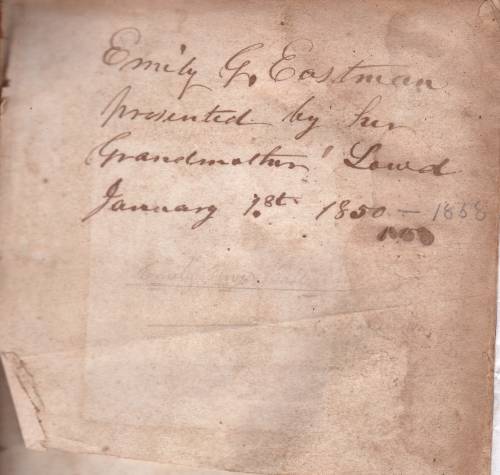 Emily G. Eastman
presented by her
Grandmother Lowd
January 1st 1850 – 1858
1850
Emily